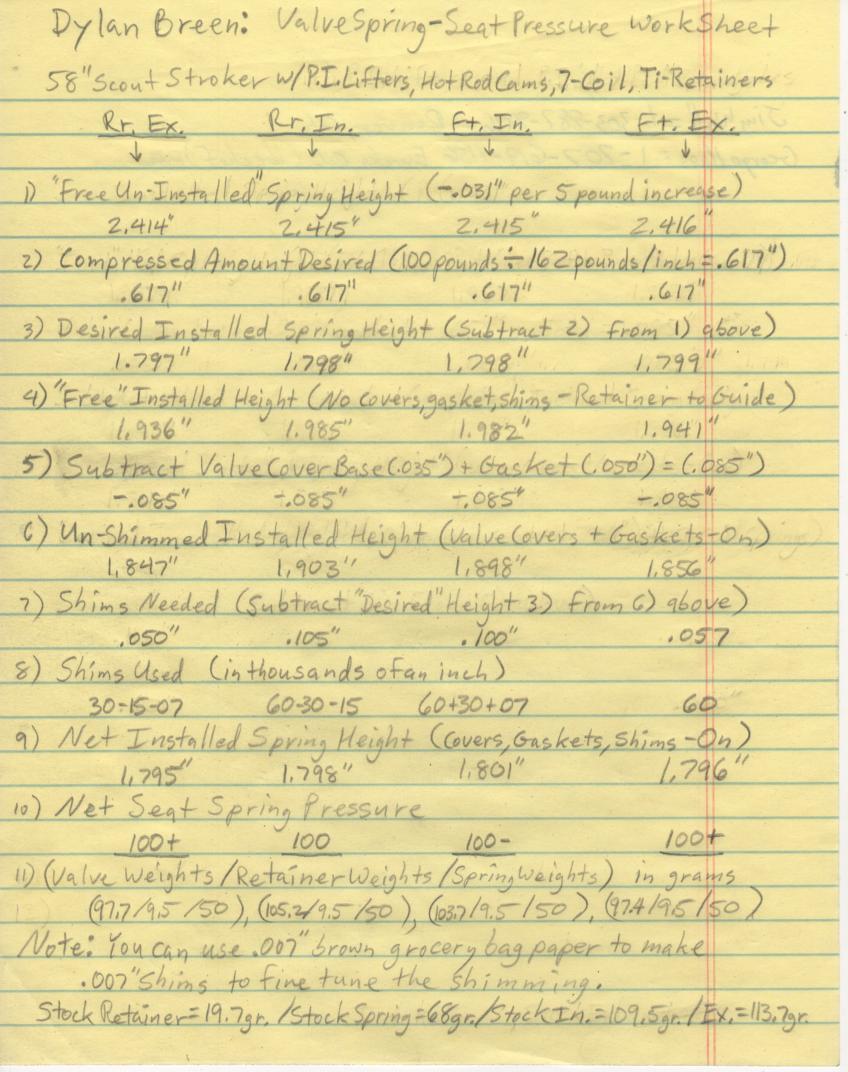 Dylan Breen: Valve Spring-Seat Pressure WorkSheet
58" Scout Stroker w/P.I. Lifters, Hot Rod Cams, 7-Coil, Ti-Retainers
Rr. Ex. Rr. In. Ft. In. Ft. Ex.
↓ ↓ ↓ ↓
1) "Free Un-Installed" Spring Height (-.031" per 5 pound increase)
2.414" 2.415" 2.415" 2.416"
2) Compressed Amount Desired (100 pounds ÷ 162 pounds/inch = .617")
.617" .617" .617" .617"
3) Desired Installed Spring Height (Subtract 2) from 1) above)
1.797" 1.798" 1.798" 1.799"
4) "Free" Installed Height (No covers, gasket, shims - Retainer to Guide)
1.936" 1.985" 1.982" 1.941"
5) Subtract Valve Cover Base (.035") + Gasket (.050") = (.085")
-.085" -.085" -.085" -.085"
6) Un-Shimmed Installed Height (Valve Covers + Gaskets-On)
1.847" 1.903" 1.898" 1.856"
7) Shims Needed (Subtract "Desired" Height 3) from 6) above)
.050" .105" .100" .057
8) Shims Used (in thousands of an inch)
30-15-07 60-30-15 60+30+07 60
9) Net Installed Spring Height (Covers, Gaskets, Shims-On)
1.795" 1.798" 1.801" 1.796"
10) Net Seat Spring Pressure
100+ 100 100- 100+
11) (Valve Weights/Retainer Weights/Spring Weights) in grams
(97.7/9.5/50), (105.2/9.5/50), (103.7/9.5/50), (97.4/9.5/50)
Note: You can use .007" brown grocery bag paper to make
.007" Shims to fine tune the shimming.
Stock Retainer=19.7gr. /Stock Spring=68gr./Stock In.=109.5gr./Ex.=113.7gr.